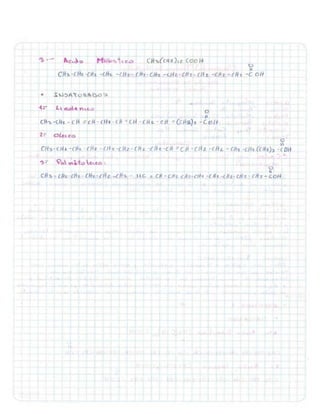 3.- Acido Miristico CH3(CH2)12 COOH
O
CH3-CH2-CH2-CH2-CH2-CH2-CH2-CH2-CH2-CH2-CH2-CH2-CH2-C OH
• INSATURADOS
1.- Linolenico
O
CH3-CH2-CH=CH-CH2-CH=CH-CH2-CH=(CH2)7-COH
2.- Oleico
O
CH3-CH2-CH2-CH2-CH2-CH2-CH2-CH2-CH=CH-CH2-CH2-CH2-CH2(CH2)3-COH
3.- Palmitoleico:
O
CH3-CH2-CH2-CH2-CH2-CH2-HC=CH-CH2-CH2-CH2-CH2-CH2-CH2-CH2-COH